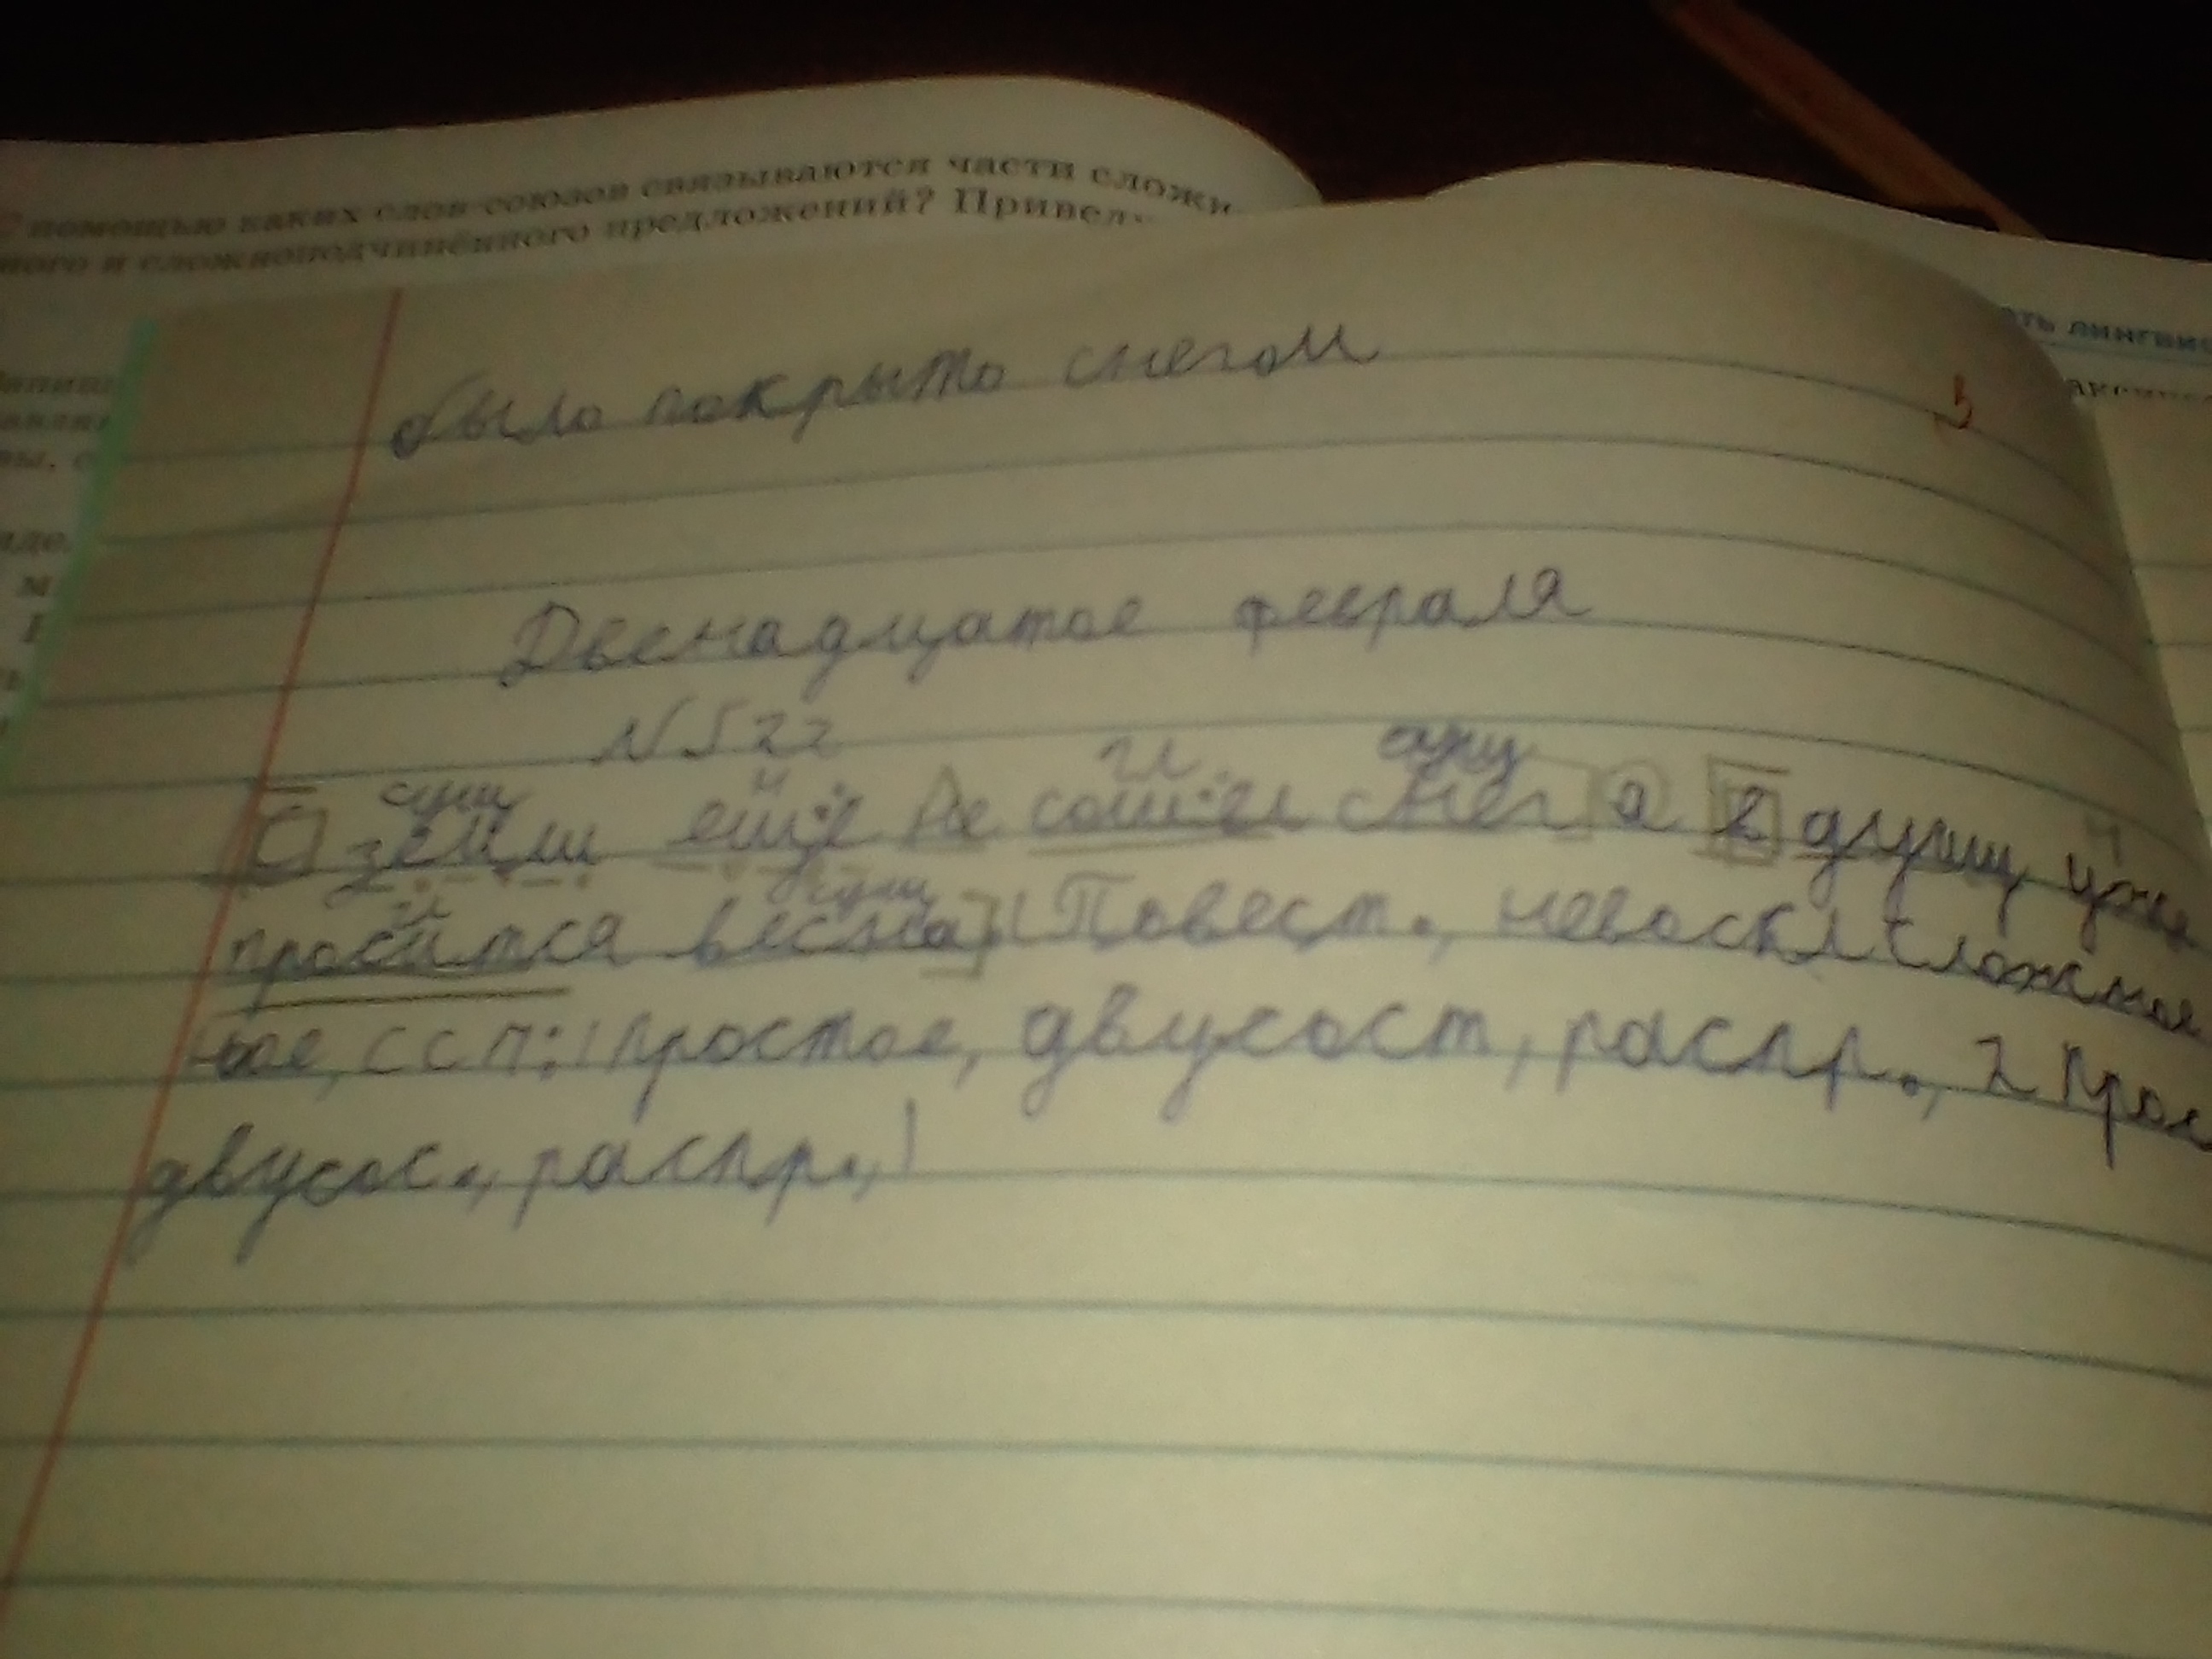 С помощью каких слов-союзов связываются части сложн
ного и сложноподчинённого предложений? Привед
было покрыто снегом
Двенадцатое февраля
№ 522
сущ н гл сущ
С земли ещё не сошёл снег а в душу уже
гл сущ
просится весна (Повест., невоскл сложное
ное, ССП: 1 простое, двусост, распр., 2 прос
двусос., распр.,)